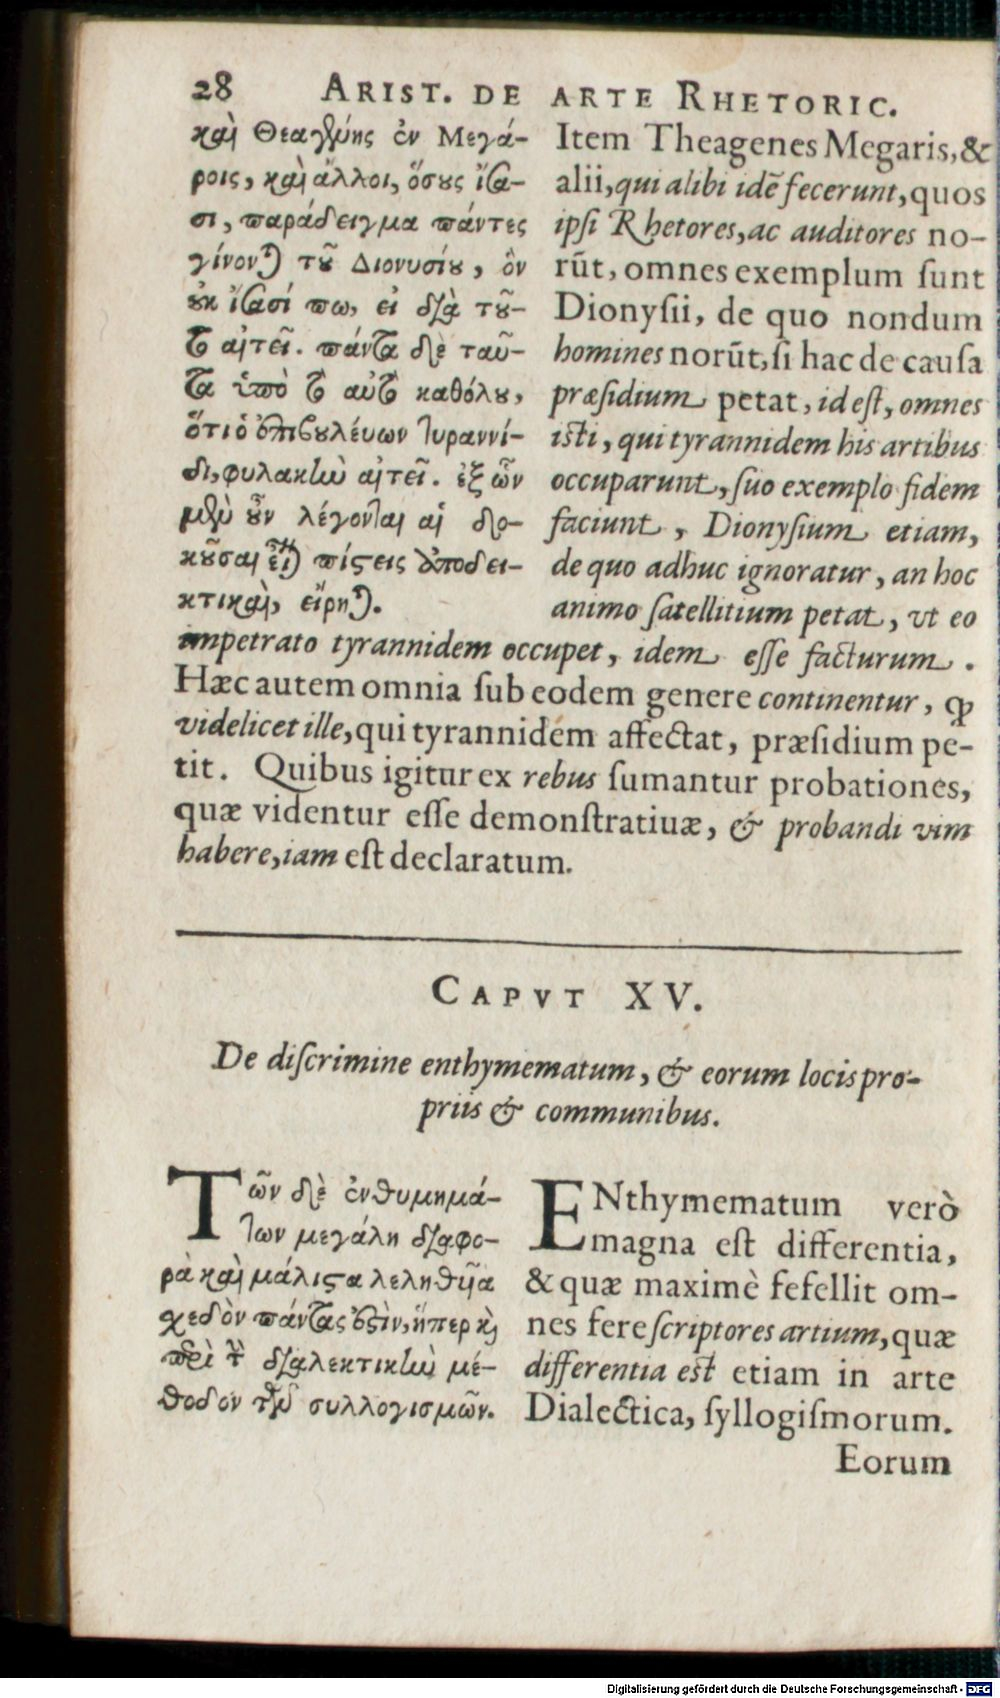 28 ARIST. DE ARTE RHETORIC.
καὶ Θεαγένης ἐν Μεγά-
ροις, καὶ ἄλλοι, ὅσους ἴσα-
σι, παράδειγμα πάντες
γίνονται τοῦ Διονυσίου, ὃν
οὐκ ἴσασί πω, εἰ διὰ τοῦ-
το αἰτεῖ. πάντα δὲ ταῦ-
τα ὑπὸ τὸ αὐτὸ καθόλου,
ὅτι ὁ ἐπιβουλέυων τυραννί-
δι, φυλακὴν αἰτεῖ. ἐξ ὧν
μὲν οὖν λέγονται αἱ δο-
κοῦσαι εἶναι πίστεις ἀποδει-
κτικαὶ, εἴρηται.
Item Theagenes Megaris, &
alii, qui alibi idē fecerunt, quos
ipſi Rhetores, ac auditores no-
rūt, omnes exemplum ſunt
Dionyſii, de quo nondum
homines norūt, ſi hac de cauſa
præſidium petat, id eſt, omnes
iſti, qui tyrannidem his artibus
occuparunt, ſuo exemplo fidem
faciunt, Dionyſium etiam,
de quo adhuc ignoratur, an hoc
animo ſatellitium petat, vt eo
impetrato tyrannidem occupet, idem eſſe facturum.
Hæc autem omnia ſub eodem genere continentur, ꝙ
videlicet ille, qui tyrannidem affectat, præſidium pe-
tit. Quibus igitur ex rebus ſumantur probationes,
quæ videntur eſſe demonſtratiuæ, & probandi vim
habere, iam eſt declaratum.
CAPVT XV.
De diſcrimine enthymematum, & eorum locis pro-
priis & communibus.
Τῶν δὲ ἐνθυμημά-
των μεγάλη διαφο-
ρὰ καὶ μάλιστα λεληθῆα
χεδὸν πάντας ὅστὶν, ἥπερ κὶ
περὶ τὴν διαλεκτικὴν μέ-
θοδον τῶν συλλογισμῶν.
ENthymematum verò
magna eſt differentia,
& quæ maximè fefellit om-
nes fere ſcriptores artium, quæ
differentia eſt etiam in arte
Dialectica, ſyllogiſmorum.
Eorum
Digitalisierung gefördert durch die Deutsche Forschungsgemeinschaft - DFG